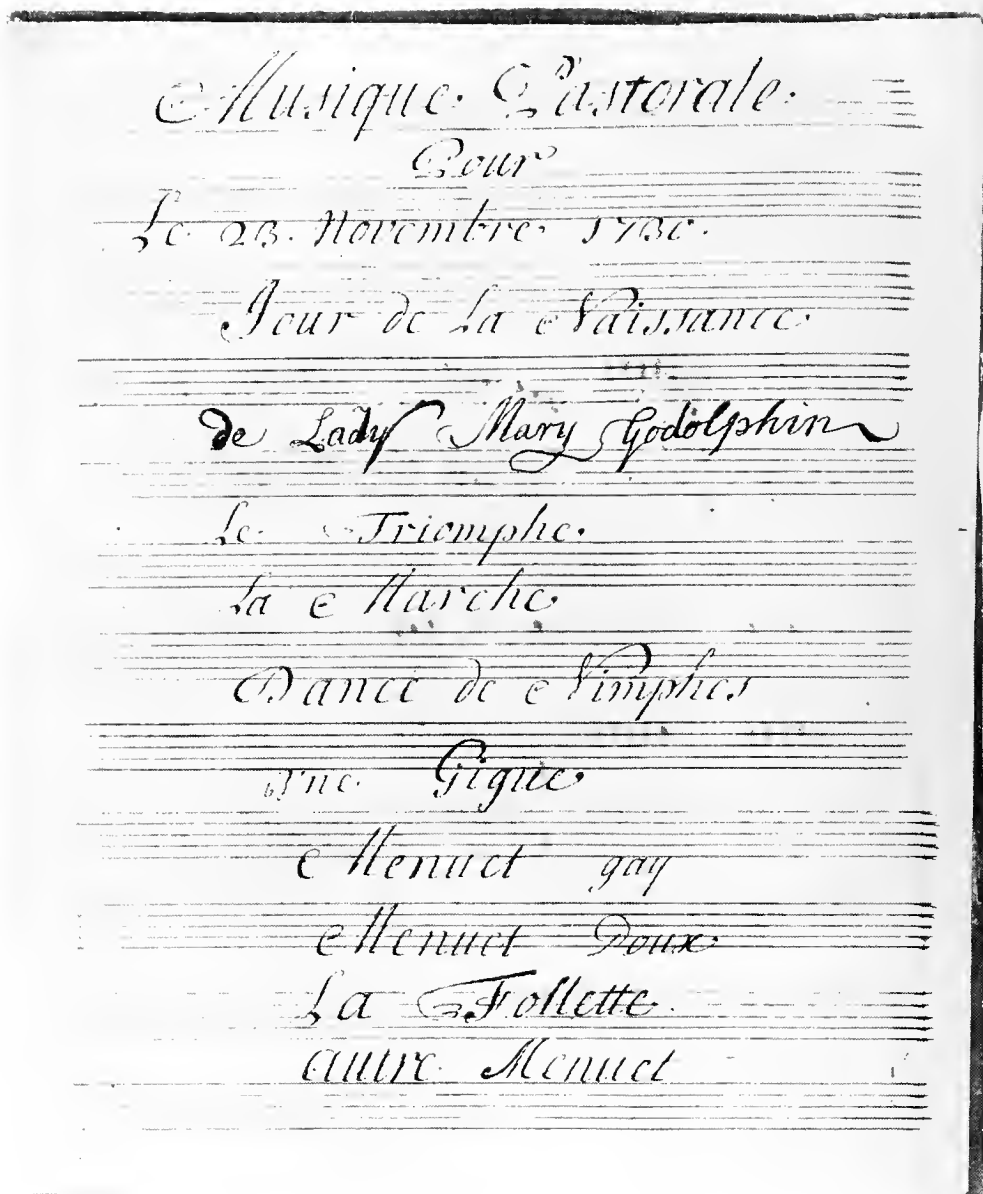 Musique Pastorale
Pour
Le 23. Novembre 1730.
Jour de la Naissance
de Lady Mary Godolphin
Le Triomphe.
La Marche
Dance de Nimphes
Vne Gigue
Menuet gay
Menuet Doux
La Follette
autre Menuet